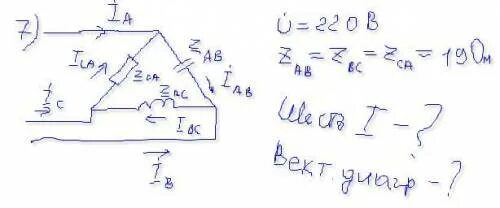 7)
İ_A
Z_AB
İ_CA
Z_CA
İ_AB
İ_C
Z_BC
İ_BC
İ_B
U̇ = 220 В
Z_AB = Z_BC = Z_CA = 19 Ом
Шесть I - ?
Вект. диагр - ?